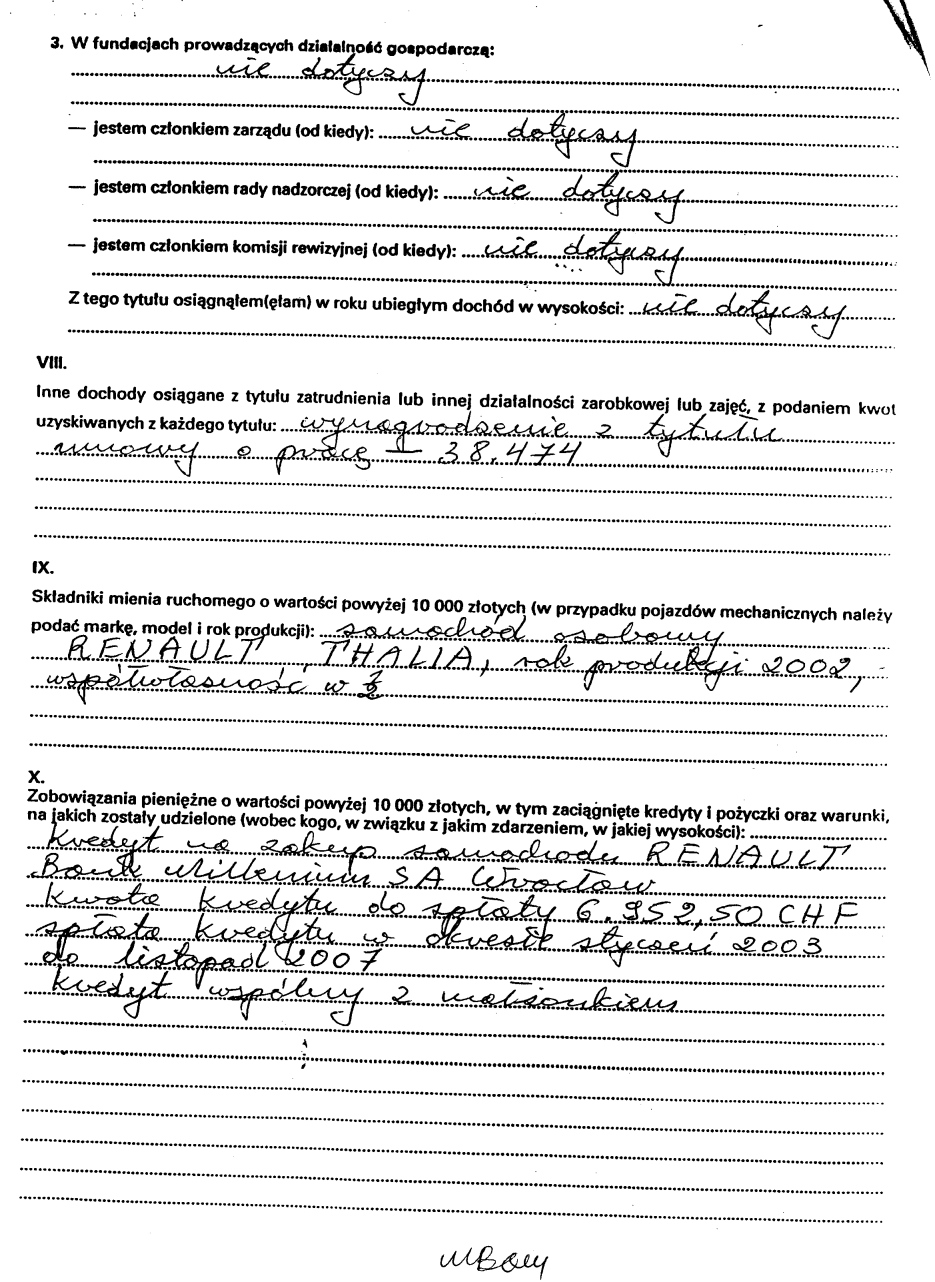 3. W fundacjach prowadzących działalność gospodarczą:
nie dotyczy
— jestem członkiem zarządu (od kiedy): nie dotyczy
— jestem członkiem rady nadzorczej (od kiedy): nie dotyczy
— jestem członkiem komisji rewizyjnej (od kiedy): nie dotyczy
Z tego tytułu osiągnąłem(ęłam) w roku ubiegłym dochód w wysokości: nie dotyczy
VIII.
Inne dochody osiągane z tytułu zatrudnienia lub innej działalności zarobkowej lub zajęć, z podaniem kwot
uzyskiwanych z każdego tytułu: wynagrodzenie z tytułu
umowy o pracę – 38.474
IX.
Składniki mienia ruchomego o wartości powyżej 10 000 złotych (w przypadku pojazdów mechanicznych należy
podać markę, model i rok produkcji): samochód osobowy
RENAULT THALIA, rok produkcji 2002,
współwłasność w
X.
Zobowiązania pieniężne o wartości powyżej 10 000 złotych, w tym zaciągnięte kredyty i pożyczki oraz warunki,
na jakich zostały udzielone (wobec kogo, w związku z jakim zdarzeniem, w jakiej wysokości):
Kredyt na zakup samochodu RENAULT
Bank Millenium SA Wrocław
Kwota kredytu do spłaty 6.952,50 CHF
spłata kredytu w okresie styczeń 2003
do listopad 2007
kredyt wspólny z małżonkiem